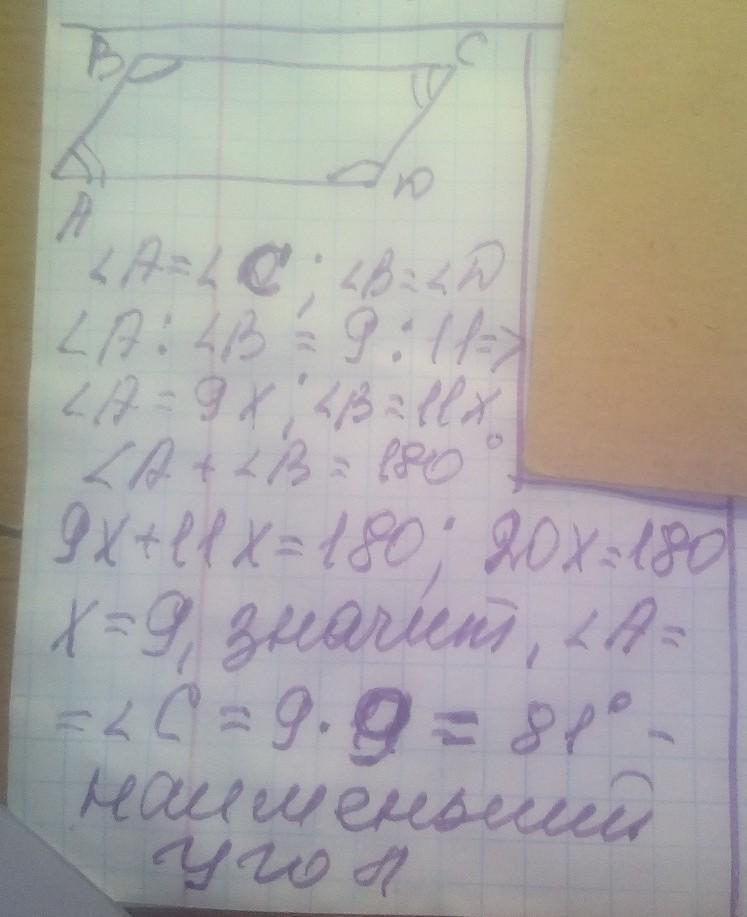 B C
A D
∠A=∠C; ∠B=∠D
∠A:∠B = 9:11=>
∠A=9x; ∠B=11x
∠A+∠B=180°
9x+11x=180; 20x=180
x=9, значит, ∠A=
=∠C=9·9=81° -
наименьший
угол